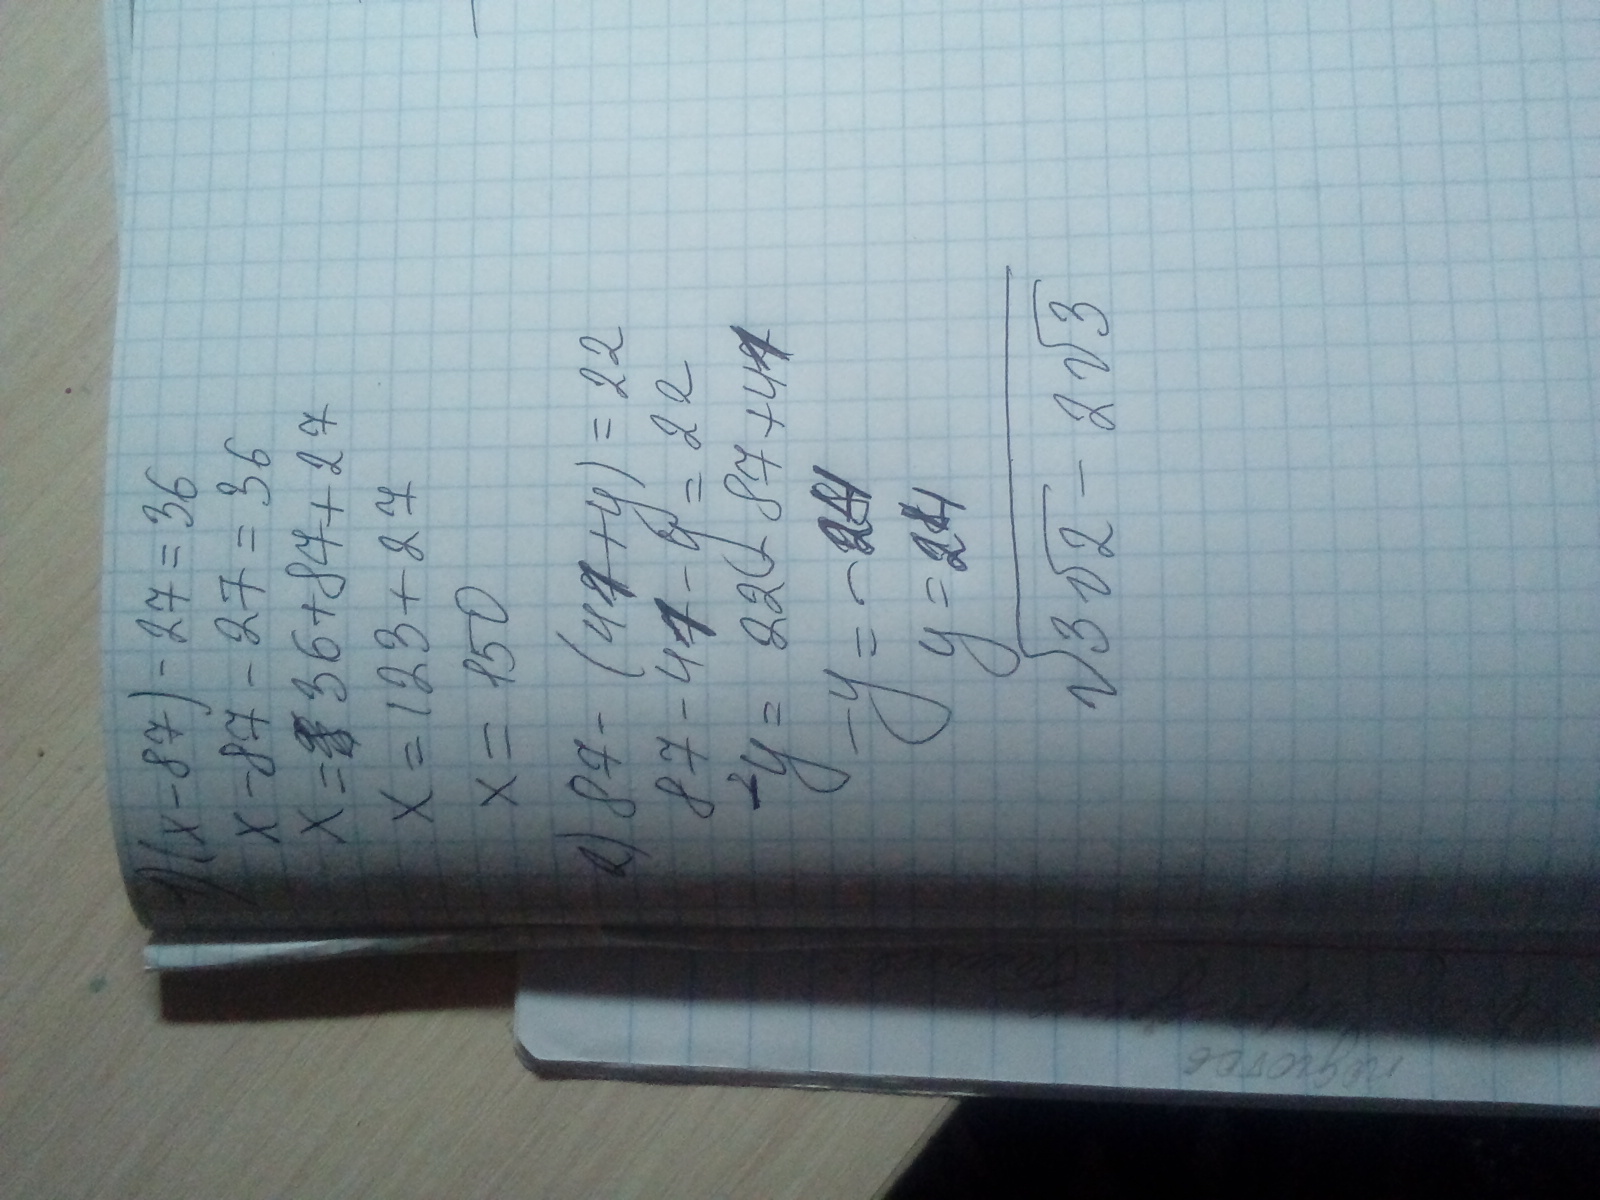 1) (x-87)-27=36
x-87-27=36
x=36+87+27
x=123+27
x=150
2) 87-(41+y)=22
87-41-y=22
-y=22-87+41
-y=-24
y=24
√(3√2-2√3)